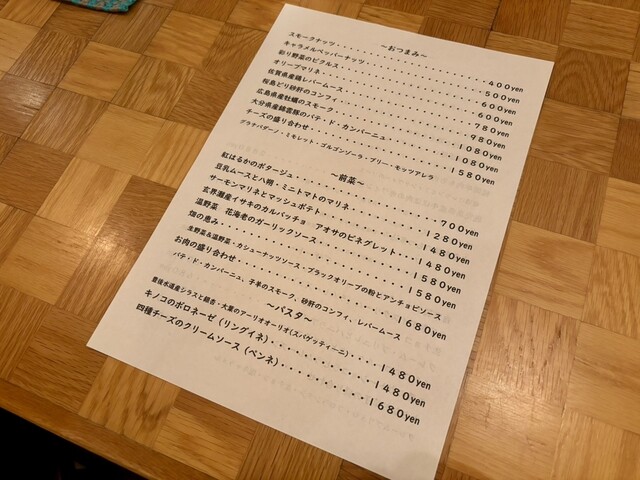 ～おつまみ～
スモークナッツ・・・・・・・・・・・・・・・・400yen
キャラメルペッパーナッツ・・・・・・・・・・・・500yen
彩り野菜のピクルス・・・・・・・・・・・・・・600yen
オリーブマリネ・・・・・・・・・・・・・・・・600yen
佐賀県産鶏レバームース・・・・・・・・・・・・780yen
桜島どり砂肝のコンフィ・・・・・・・・・・・・980yen
広島県産牡蠣のスモーク・・・・・・・・・・・・1080yen
大分県産錦雲豚のパテ・ド・カンパーニュ・・・・・・1080yen
チーズの盛り合わせ・・・・・・・・・・・・・・1580yen
グラナパダーノ・ミモレット・ゴルゴンゾーラ・ブリー・モッツアレラ
～前菜～
紅はるかのポタージュ・・・・・・・・・・・・・700yen
豆乳ムースと八朔・ミニトマトのマリネ・・・・・・・1280yen
サーモンマリネとマッシュポテト・・・・・・・・・1480yen
玄界灘産イサキのカルパッチョ　アオサのビネグレット・・・1480yen
温野菜　花海老のガーリックソース・・・・・・・・1580yen
畑の恵み・・・・・・・・・・・・・・・・・・1580yen
生野菜&温野菜・カシューナッツソース・ブラックオリーブの粉とアンチョビソース
お肉の盛り合わせ・・・・・・・・・・・・・・・1680yen
パテ・ド・カンパーニュ、子羊のスモーク、砂肝のコンフィ、レバームース
～パスタ～
豊後水道産シラスと銀杏・大葉のアーリオオーリオ(スパゲッティーニ)・・・・1480yen
キノコのボロネーゼ（リングイネ）・・・・・・・・1480yen
四種チーズのクリームソース（ペンネ）・・・・・・・1680yen